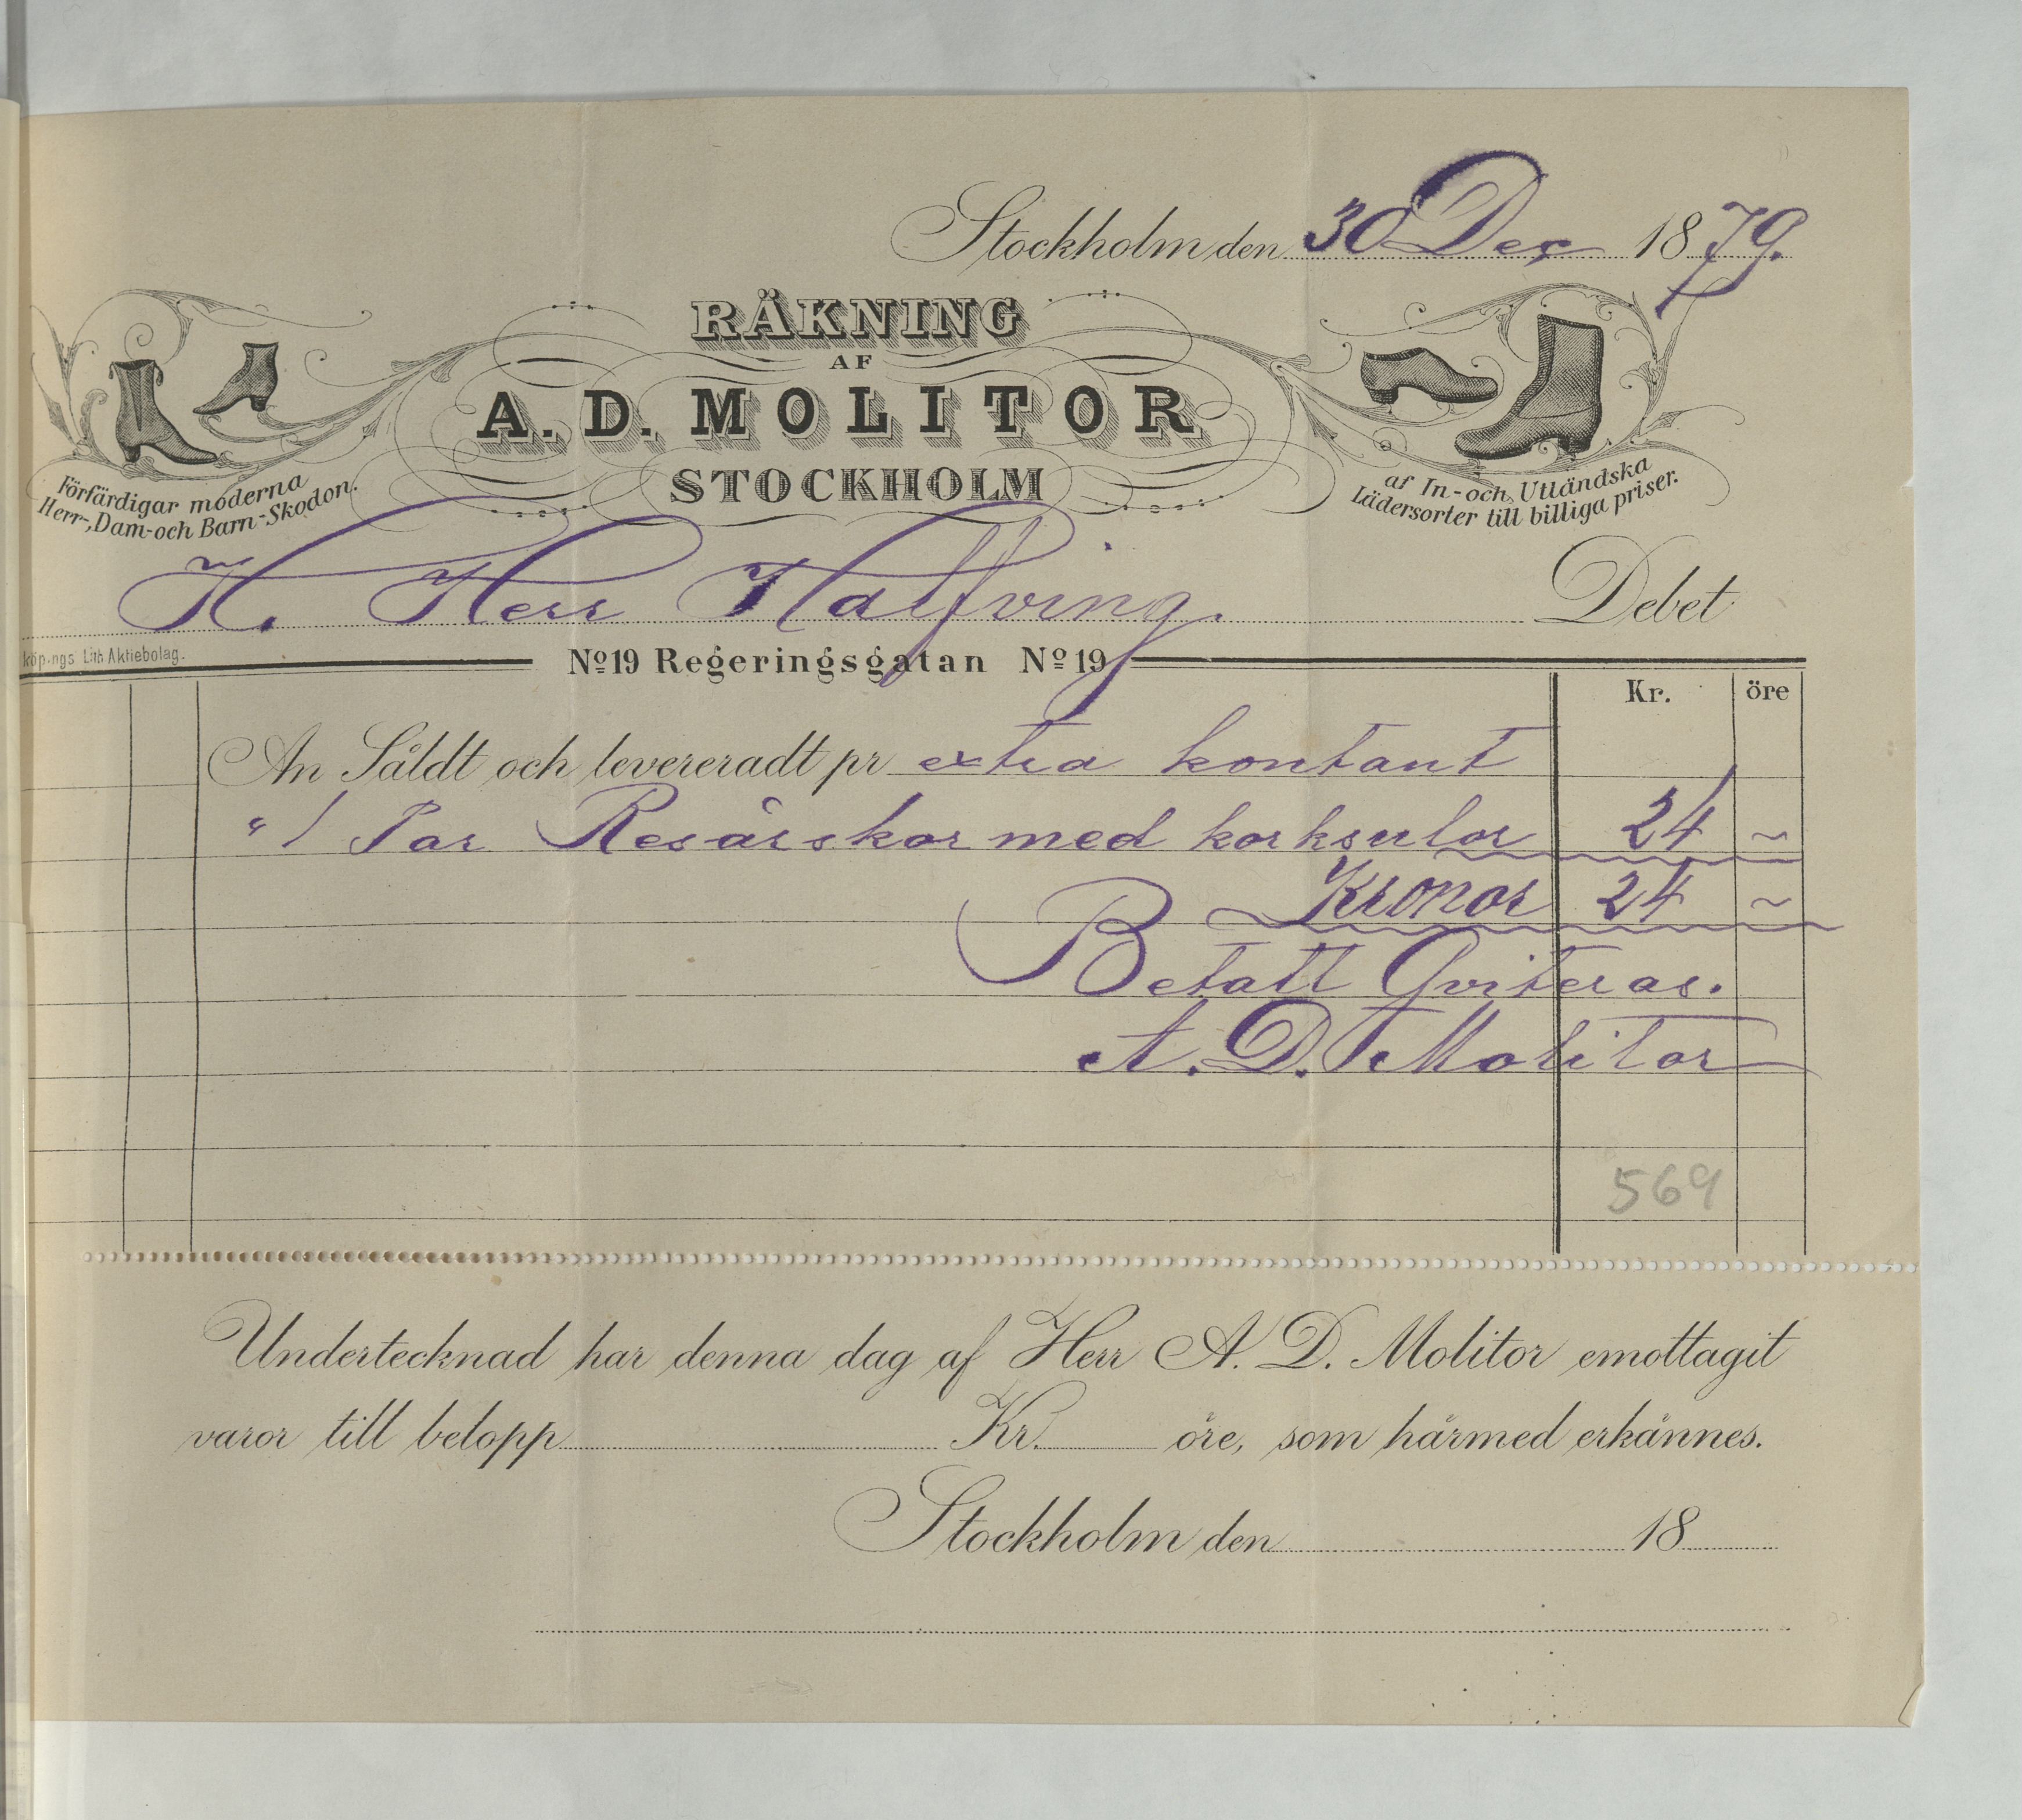 Stockholm den 30 Dec 1879.
RÄKNING
AF
A. D. MOLITOR
STOCKHOLM
Förfärdigar moderna
Herr-, Dam- och Barn-Skodon.
af In- och Utländska
Lädersorter till billiga priser.
H. Herr Halfving. Debet
köpings Lith. Aktiebolag.
No 19 Regeringsgatan No 19
Kr. öre
An Såldt och levereradt pr extra kontant
" 1 Par Resårskor med korksulor 24 ~
Kronor 24 ~
Betalt Qviteras.
A. D. Molitor
569
Undertecknad har denna dag af Herr A. D. Molitor emottagit
varor till belopp Kr. öre, som härmed erkännes.
Stockholm den 18